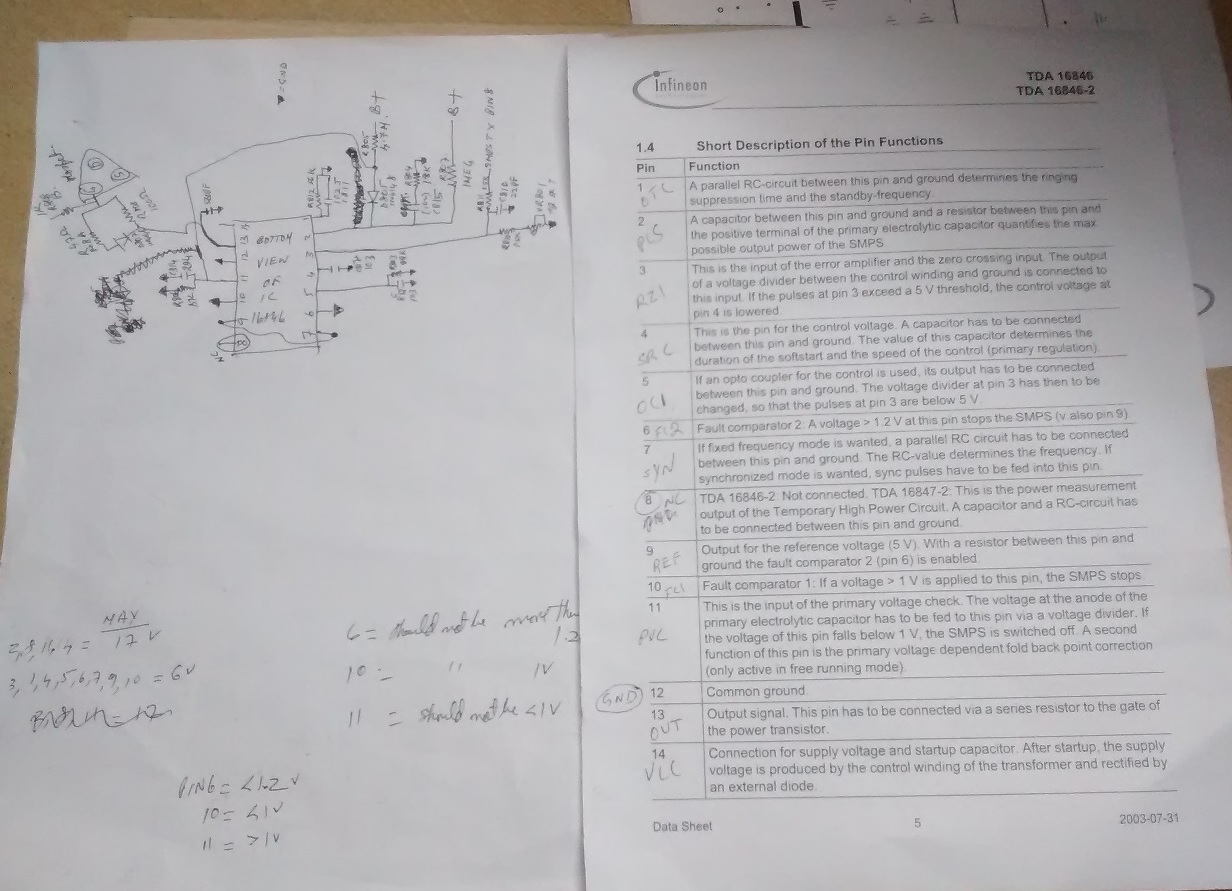 GND
B+
B+
4.7M
1MEG
SMPS TX PIN 8
BOTTOM
VIEW
IC
16846
14
13
12
11
10
9
8
NC
2
3
4
5
6
7
MAX
17 V
3, 1, 4, 5, 6, 7, 9, 10 = 6V
6 = should not be more than
1.2
10 = " 1V
11 = should not be <1V
PIN6 = <1.2 V
10 = <1V
11 = >1V
Infineon
TDA 16846
TDA 16846-2
1.4 Short Description of the Pin Functions
Pin Function
1 OTC A parallel RC-circuit between this pin and ground determines the ringing
suppression time and the standby-frequency.
2 PCS A capacitor between this pin and ground and a resistor between this pin and
the positive terminal of the primary electrolytic capacitor quantifies the max.
possible output power of the SMPS.
3 RZI This is the input of the error amplifier and the zero crossing input. The output
of a voltage divider between the control winding and ground is connected to
this input. If the pulses at pin 3 exceed a 5 V threshold, the control voltage at
pin 4 is lowered.
4 SRC This is the pin for the control voltage. A capacitor has to be connected
between this pin and ground. The value of this capacitor determines the
duration of the softstart and the speed of the control (primary regulation).
5 OCI If an opto coupler for the control is used, its output has to be connected
between this pin and ground. The voltage divider at pin 3 has then to be
changed, so that the pulses at pin 3 are below 5 V.
6 FC2 Fault comparator 2: A voltage > 1.2 V at this pin stops the SMPS (v also pin 9).
7 SYN If fixed frequency mode is wanted, a parallel RC circuit has to be connected
between this pin and ground. The RC-value determines the frequency. If
synchronized mode is wanted, sync pulses have to be fed into this pin.
8 NC TDA 16846-2: Not connected. TDA 16847-2: This is the power measurement
output of the Temporary High Power Circuit. A capacitor and a RC-circuit has
to be connected between this pin and ground.
9 REF Output for the reference voltage (5 V). With a resistor between this pin and
ground the fault comparator 2 (pin 6) is enabled.
10 FC1 Fault comparator 1: If a voltage > 1 V is applied to this pin, the SMPS stops.
11 PVC This is the input of the primary voltage check. The voltage at the anode of the
primary electrolytic capacitor has to be fed to this pin via a voltage divider. If
the voltage of this pin falls below 1 V, the SMPS is switched off. A second
function of this pin is the primary voltage dependent fold back point correction
(only active in free running mode).
GND 12 Common ground.
13 OUT Output signal. This pin has to be connected via a series resistor to the gate of
the power transistor.
14 VCC Connection for supply voltage and startup capacitor. After startup, the supply
voltage is produced by the control winding of the transformer and rectified by
an external diode.
Data Sheet 5 2003-07-31